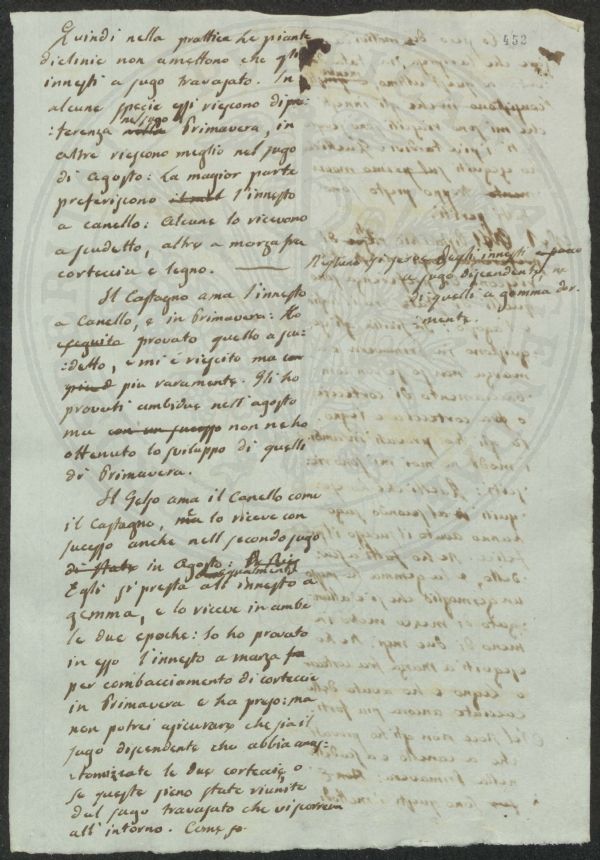 453
Quindi nella prattica le piante
diclinie non amettono che gli
innesti a sugo travasato. In
alcune specie essi riescono di pre-
:ferenza nel sugo nella Primavera, in
altre riescono meglio nel sugo
di Agosto: La magior parte
preferiscono l'innesto
a canello: Alcune lo ricevono
a scudetto, altre a marza fra
corteccia e legno.
Il Castagno ama l'innesto
a Canello, e in Primavera: Ho
eseguito provato quello a scu-
:detto, e mi è riescito ma con
più d più raramente. Gli ho
provati ambidue nell'agosto
ma con un sucesso non ne ho
ottenuto lo sviluppo di quelli
di Primavera.
Il Gelso ama il Canello come
il Castagno, ma lo riceve con
sucesso anche nell secondo sugo
di state in Agosto:
Egli egualmente si presta all'innesto a
gemma, e lo riceve in ambe
le due epoche: Io ho provato
in esso l'innesto a marza fa
per combacciamento di corteccie
in Primavera e ha preso: ma
non potrei asicurare che sia il
sugo discendente che abbia anas-
:tomizate le due corteccie, o
se queste sieno state riunite
dal sugo travasato che vi scorrem
all'intorno. Come so
degli innesti
a sugo discendente,
di quelli a gemma dor-
mente.